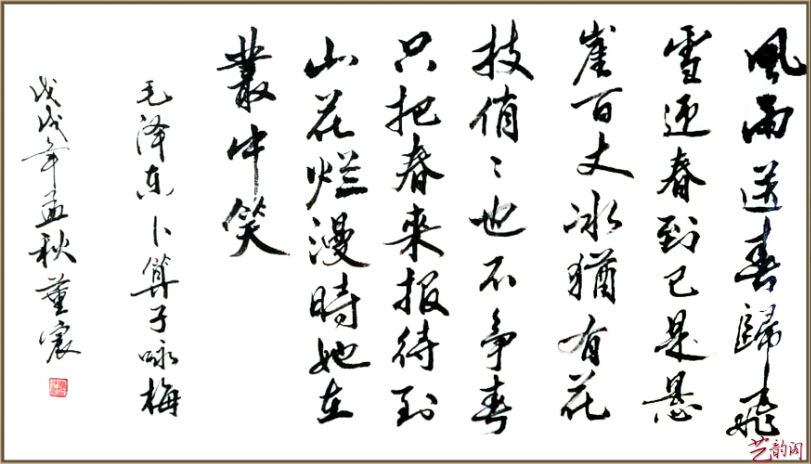 風雨送春歸飛
雪迎春到已是悬
崖百丈冰猶有花
枝俏〻也不争春
只把春来报待到
山花烂漫時她在
叢中笑
毛泽东卜算子咏梅
戊戌年孟秋董宸
艺韵阁